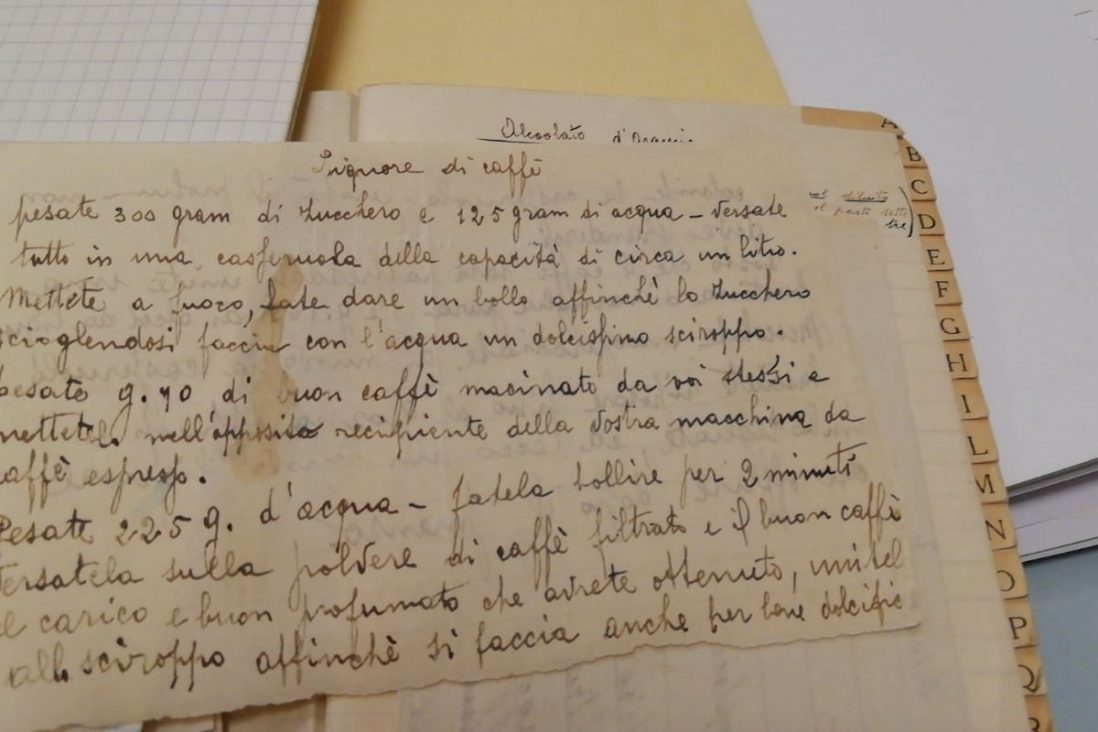 Alcoolato d'Arancio
Liquore di caffè
pesate 300 gram di zucchero e 125 gram di acqua - versate
tutto in una casseruola della capacità di circa un litro.
Mettete a fuoco, fate dare un bollo affinchè lo zucchero
scioglendosi faccia con l'acqua un dolcissimo sciroppo.
pesate g. 70 di buon caffè macinato da voi stessi e
mettetelo nell'apposito recipiente della vostra macchina da
caffè espresso.
Pesate 225 g. d'acqua - fatela bollire per 2 minuti
versatela sulla polvere di caffè filtrato e il buon caffè
carico e buon profumato che avrete ottenuto, unitel
allo sciroppo affinchè si faccia anche per bene dolcific
tre)
A
B
C
D
E
F
G
H
I
L
M
N
O
P
Q
R